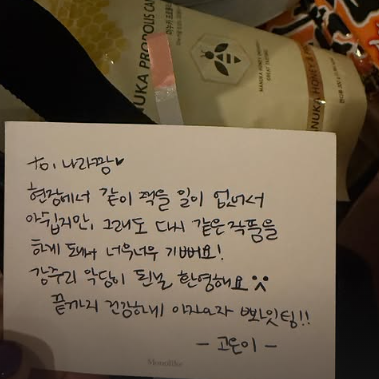 MANUKA PROPOLIS CAN
MANUKA HONEY &
to. 나라짱♥
현장에서 같이 찍을 일이 없어서
아쉽지만, 그래도 다시 같은작품을
하게 돼서 너무너무 기뻐요!
강주리 악당이 된걸 환영해요
끝까지 건강하게 아자아자 빠잇팅!!
- 고은이 -
Monolike